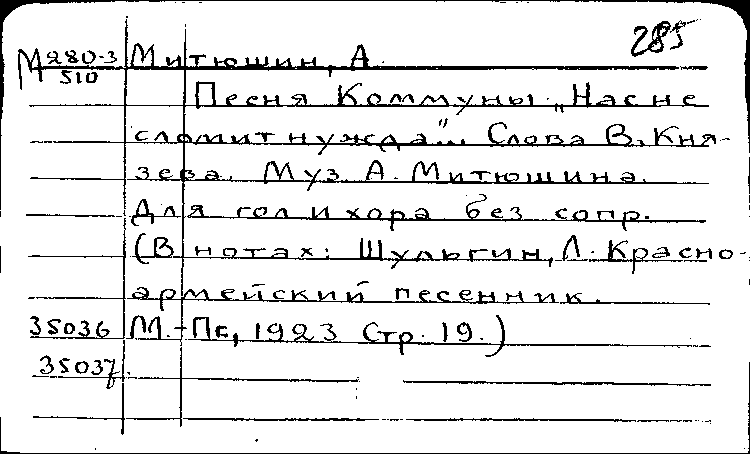 285
М280-3 Митюшин, А.
510
Песня Коммуны „Нас не
сломит нужда"... Слова В. Кня-
зева. Муз. А. Митюшина.
Для гол и хора без сопр.
(В нотах: Шульгин, Л. Красно-
армейский песенник.
35036 М.-Пг, 1923 Стр. 19.)
35037.